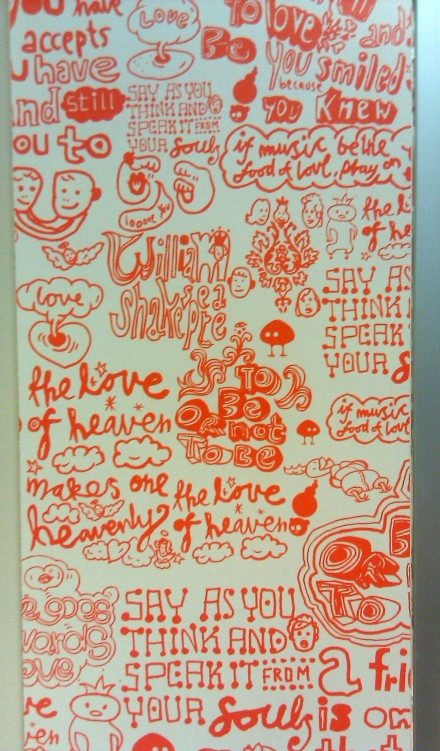 you have
accepts
have
and still
ou to
Love
TO
Be
love
and
you smiled
because
YOU KNEW
SAY AS YOU
THINK AND
SPEAK IT FROM
YOUR Souls
if music be the
food of love, play on
I looove you
William
Shakespeare
the l
of he
SAY AS
THINK
SPEAK
YOUR S
love
the love
of heaven
makes one
heavenly
TO
Be
OR not
TO BE
if music
food of lo
the love
of heaven
e goes
wards
ove
SAY AS YOU
THINK AND
SPEAK IT FROM
YOUR Souls
OR
TO
fri
is on
ve
ven